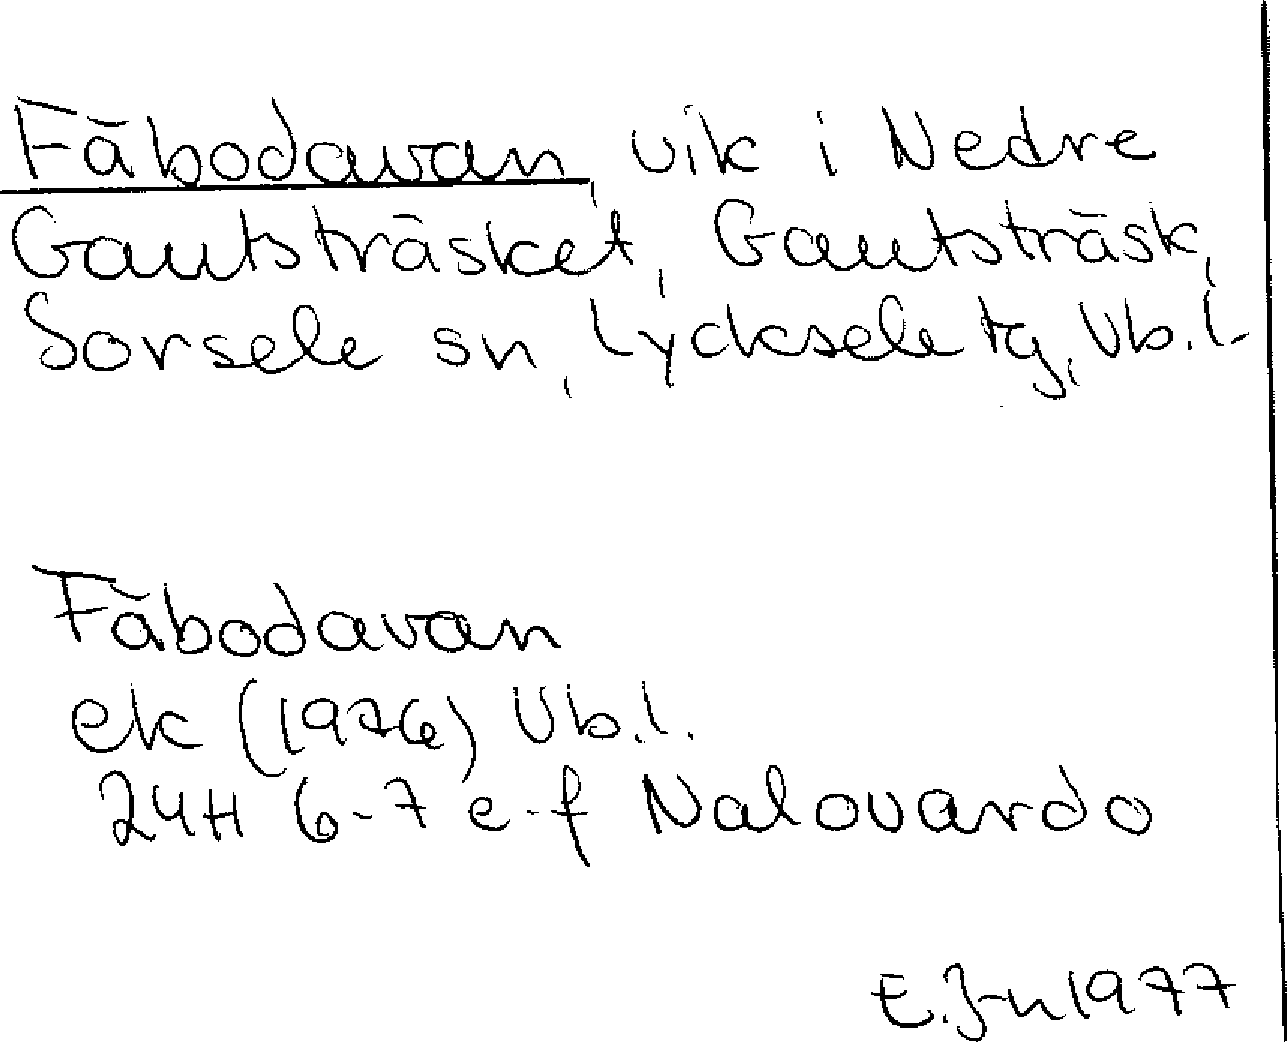 Fäbodavan, vik i Nedre
Gautsträsket, Gautsträsk,
Sorsele sn, Lycksele tg, Vb.l.
Fäbodavan
ek (1976) Vb.l.
24H 6-7 e-f Nalovardo
E.J-n 1977